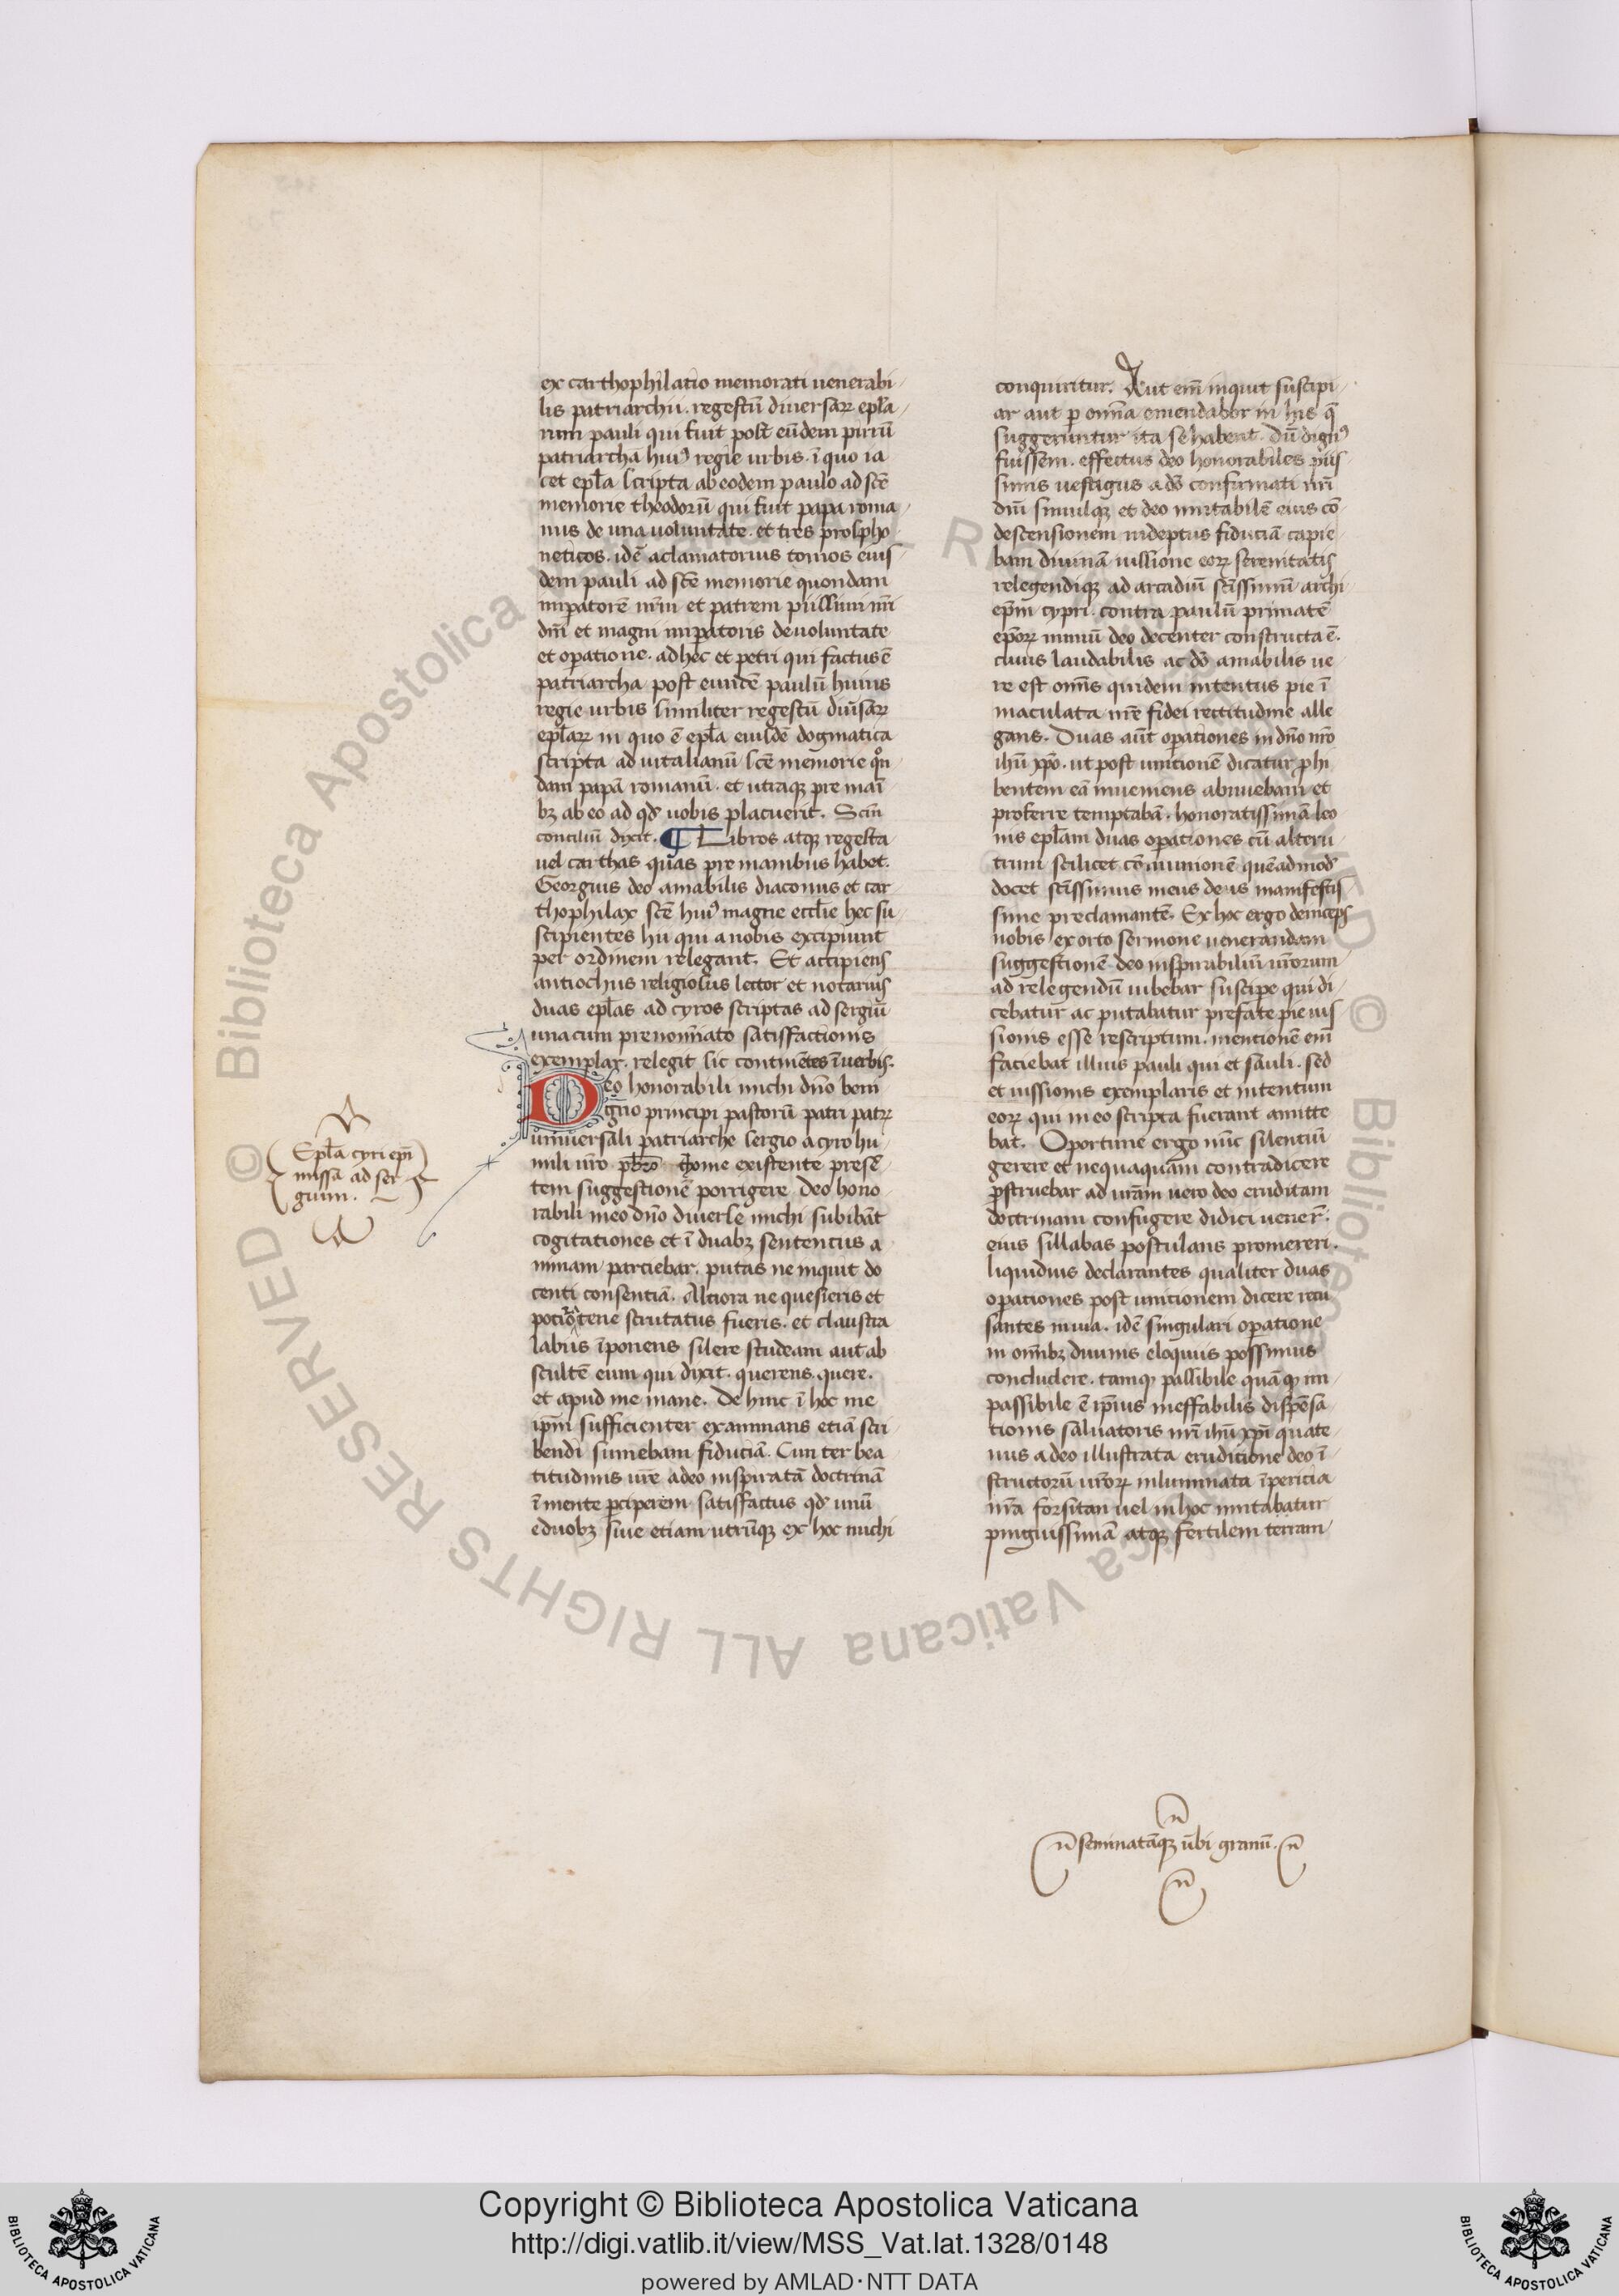 ex carthophilatio memorati uenerabi
lis patriarchii. regestū diuersarꝝ ep̄la
rum pauli qui fuit post eūdem pirrū
patriarcha huiꝰ regie urbis. ī quo ia
cet ep̄la scripta ab eodem paulo ad scē
memorie theodorū qui fuit papa roma
nus de una uoluntate. et tres prospho
neticos. idē aclamatorius tomos eius
dem pauli ad scē memorie quondam
imꝑatorē nr̄m et patrem piissimi nr̄i
dn̄i et magni imꝑatoris de uoluntate
et oꝑatione. ad hec et petri qui factus ē
patriarcha post eundē paulū huius
regie urbis similiter regestū diūsarꝝ
ep̄larꝝ in quo ē ep̄la eiusdē dogmatica
scripta ad uitalianū scē memorie qͦn
dam papā romanū. et utraqꝫ pre mani
bꝫ ab eo ad qd̄ uobis placuerit. Scm̄
conciliū dixit. ¶ Libros atqꝫ regesta
uel carthas quas pre manibus habet.
Georgius deo amabilis diaconus et car
thophilax scē huiꝰ magne eccl̄ie hec su
scipientes hii qui a nobis excipiunt
per ordinem relegant. Et accipiens
antiochus religiosus lector et notarius
duas ep̄las ad cyros scriptas ad sergiū
una cum prenomīato satisfactionis
exemplar. relegit sic continētes ī uerbis.
Deo honorabili michi dn̄o beni
gno principi pastorū patri patrꝝ
uniuersali patriarche sergio a cyro hu
mili uro p̄bro
tem suggestionē porrigere deo hono
rabili meo dn̄o diuerse michi subibāt
cogitationes et ī duabꝫ sententiis a
nimam parciebar. putas ne inquit do
centi consentiā. Altiora ne quesieris et
labiis īponens silere studeam aut ab
scultē eum qui dixit. querens quere.
et apud me mane. De hinc ī hoc me
ip̄m sufficienter examinans etiā scri
bendi sumebam fiduciā. Cum ter bea
titudinis ur̄e a deo inspiratā doctrinā
ī mente ꝑciperem satisfactus qd̄ unū
e duobꝫ siue etiam utrūqꝫ ex hoc michi
Ep̄la cyri ep̄i
missa ad ser
gium.
conquiritur. Aut em̄ inquit suscipi
ar aut ꝑ omnia emendabor in his q̄
suggeruntur ita se habent. Dū dignꝰ
fuissem. effectus deo honorabiles piis
simis uestigiis a dō confirmati nr̄i
dn̄i simulqꝫ et deo imitabilē eius cō
descensionem indeptus fiduciā capie
bam diuinā iussione eorꝝ serenitatis
relegendiqꝫ ad arcadiū scissimū archi
ep̄m cypri. contra paulū primatē
ep̄orꝝ nimiū deo decenter constructa ē.
cuius laudabilis ac dō amabilis ue
re est om̄s quidem intentus pie ī
maculata nr̄e fidei rectitudine alle
gans. Duas aūt oꝑationes in dn̄o nr̄o
ihū xp̄o. ut post unitionē dicatur ꝓhi
bentem eā inueniens abnuebam et
proferre temptabā. honoratissimā leo
nis ep̄lam duas oꝑationes cū alteru
trum scilicet cōmunionē quēadmod̄
docet scissimus meus deus manifestis
sime preclamantē. Ex hoc ergo deinceps
nobis exorto sermone uenerandam
suggestionē deo inspirabiliū ur̄orum
ad relegendū iubebar suscipe qui di
cebatur ac putabatur prefate pie uis
sionis esse rescriptum. mentionē em̄
faciebat illius pauli qui et sauli. sed
et iussionis exemplaris et intentum
eorꝝ qui in eo scripta fuerant amitte
bat. Oportune ergo nūc silentiū
gerere et nequaquam contradicere
ꝑstruebar ad ur̄am uero deo eruditam
doctrinam confugere didici uener̄.
eius sillabas postulans promereri.
liquidius declarantes qualiter duas
oꝑationes post unitionem dicere recu
santes idē singulari oꝑatione
in om̄ibꝫ diuinis eloquiis possimus
concludere. tamqꝫ passibile quāqꝫ im
passibile ē ip̄ius ineffabilis dispēsa
tionis saluatoris nr̄i ihū xp̄i quate
nus a deo illustrata eruditione deo ī
structorū ur̄orꝝ inluminata īpericia
nr̄a forsitan uel in hoc imitabatur
pinguissimā atqꝫ fertilem terram
seminatāqꝫ ūbi granū.
Copyright © Biblioteca Apostolica Vaticana
http://digi.vatlib.it/view/MSS_Vat.lat.1328/0148
powered by AMLAD·NTT DATA
BIBLIOTECA APOSTOLICA VATICANA
BIBLIOTECA APOSTOLICA VATICANA
© Biblioteca Apostolica Vaticana ALL RIGHTS RESERVED